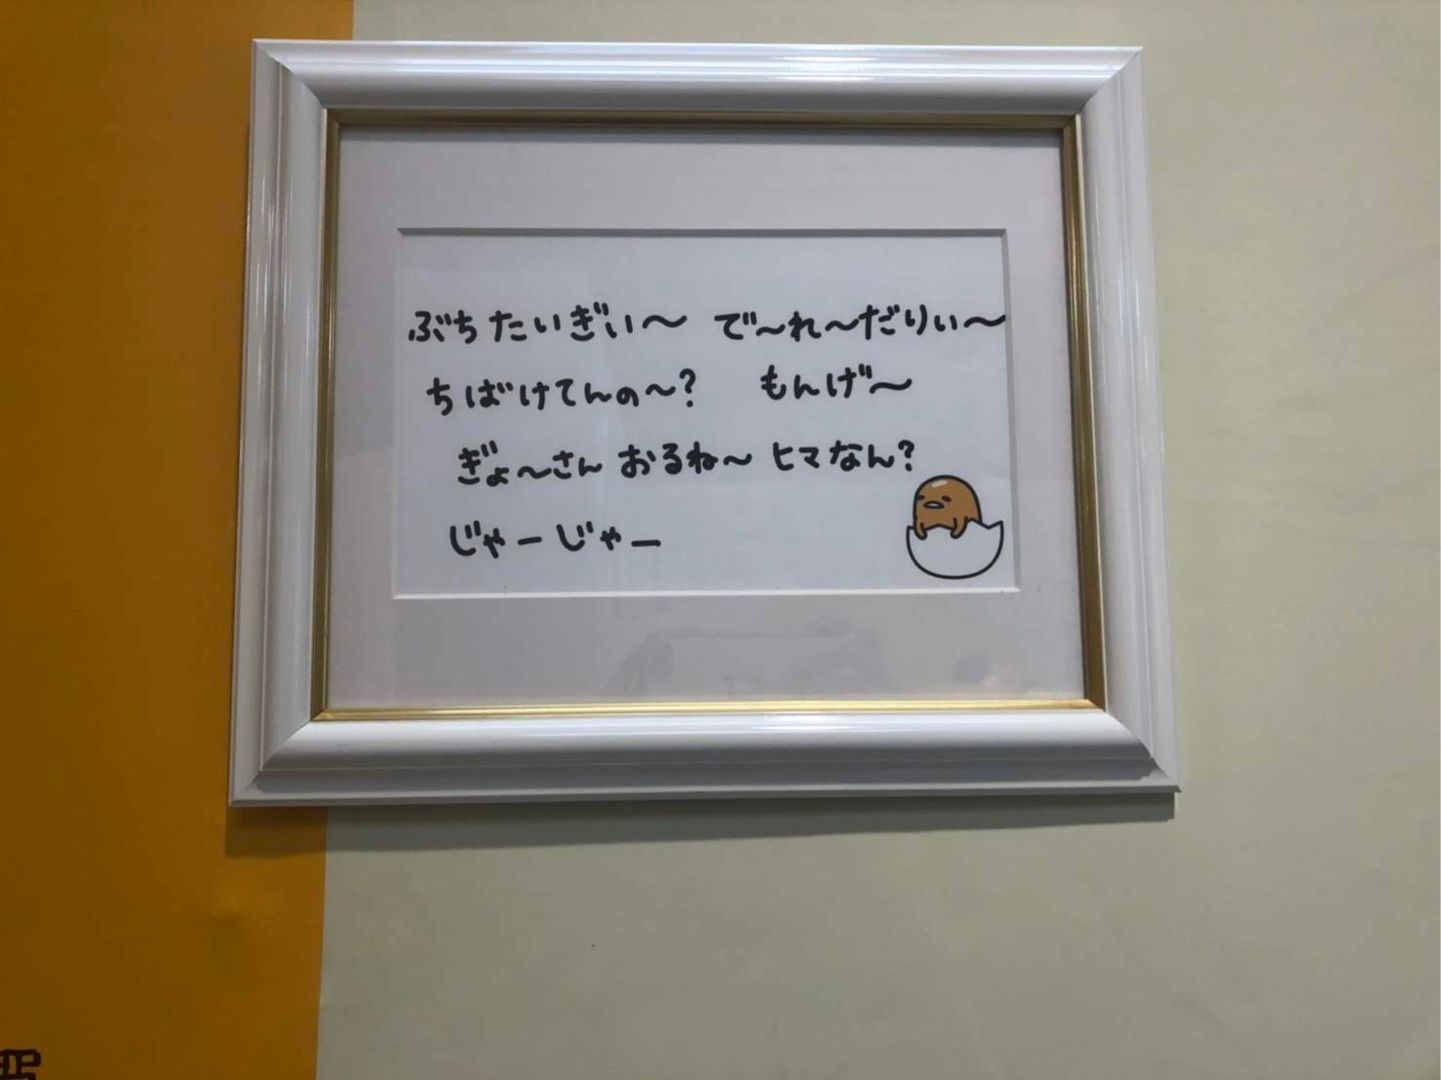 ぶちたいぎい〜 で〜れ〜だりぃ〜
ちばけてんの〜? もんげ〜
ぎょ〜さん おるね〜 ヒマなん?
じゃーじゃー